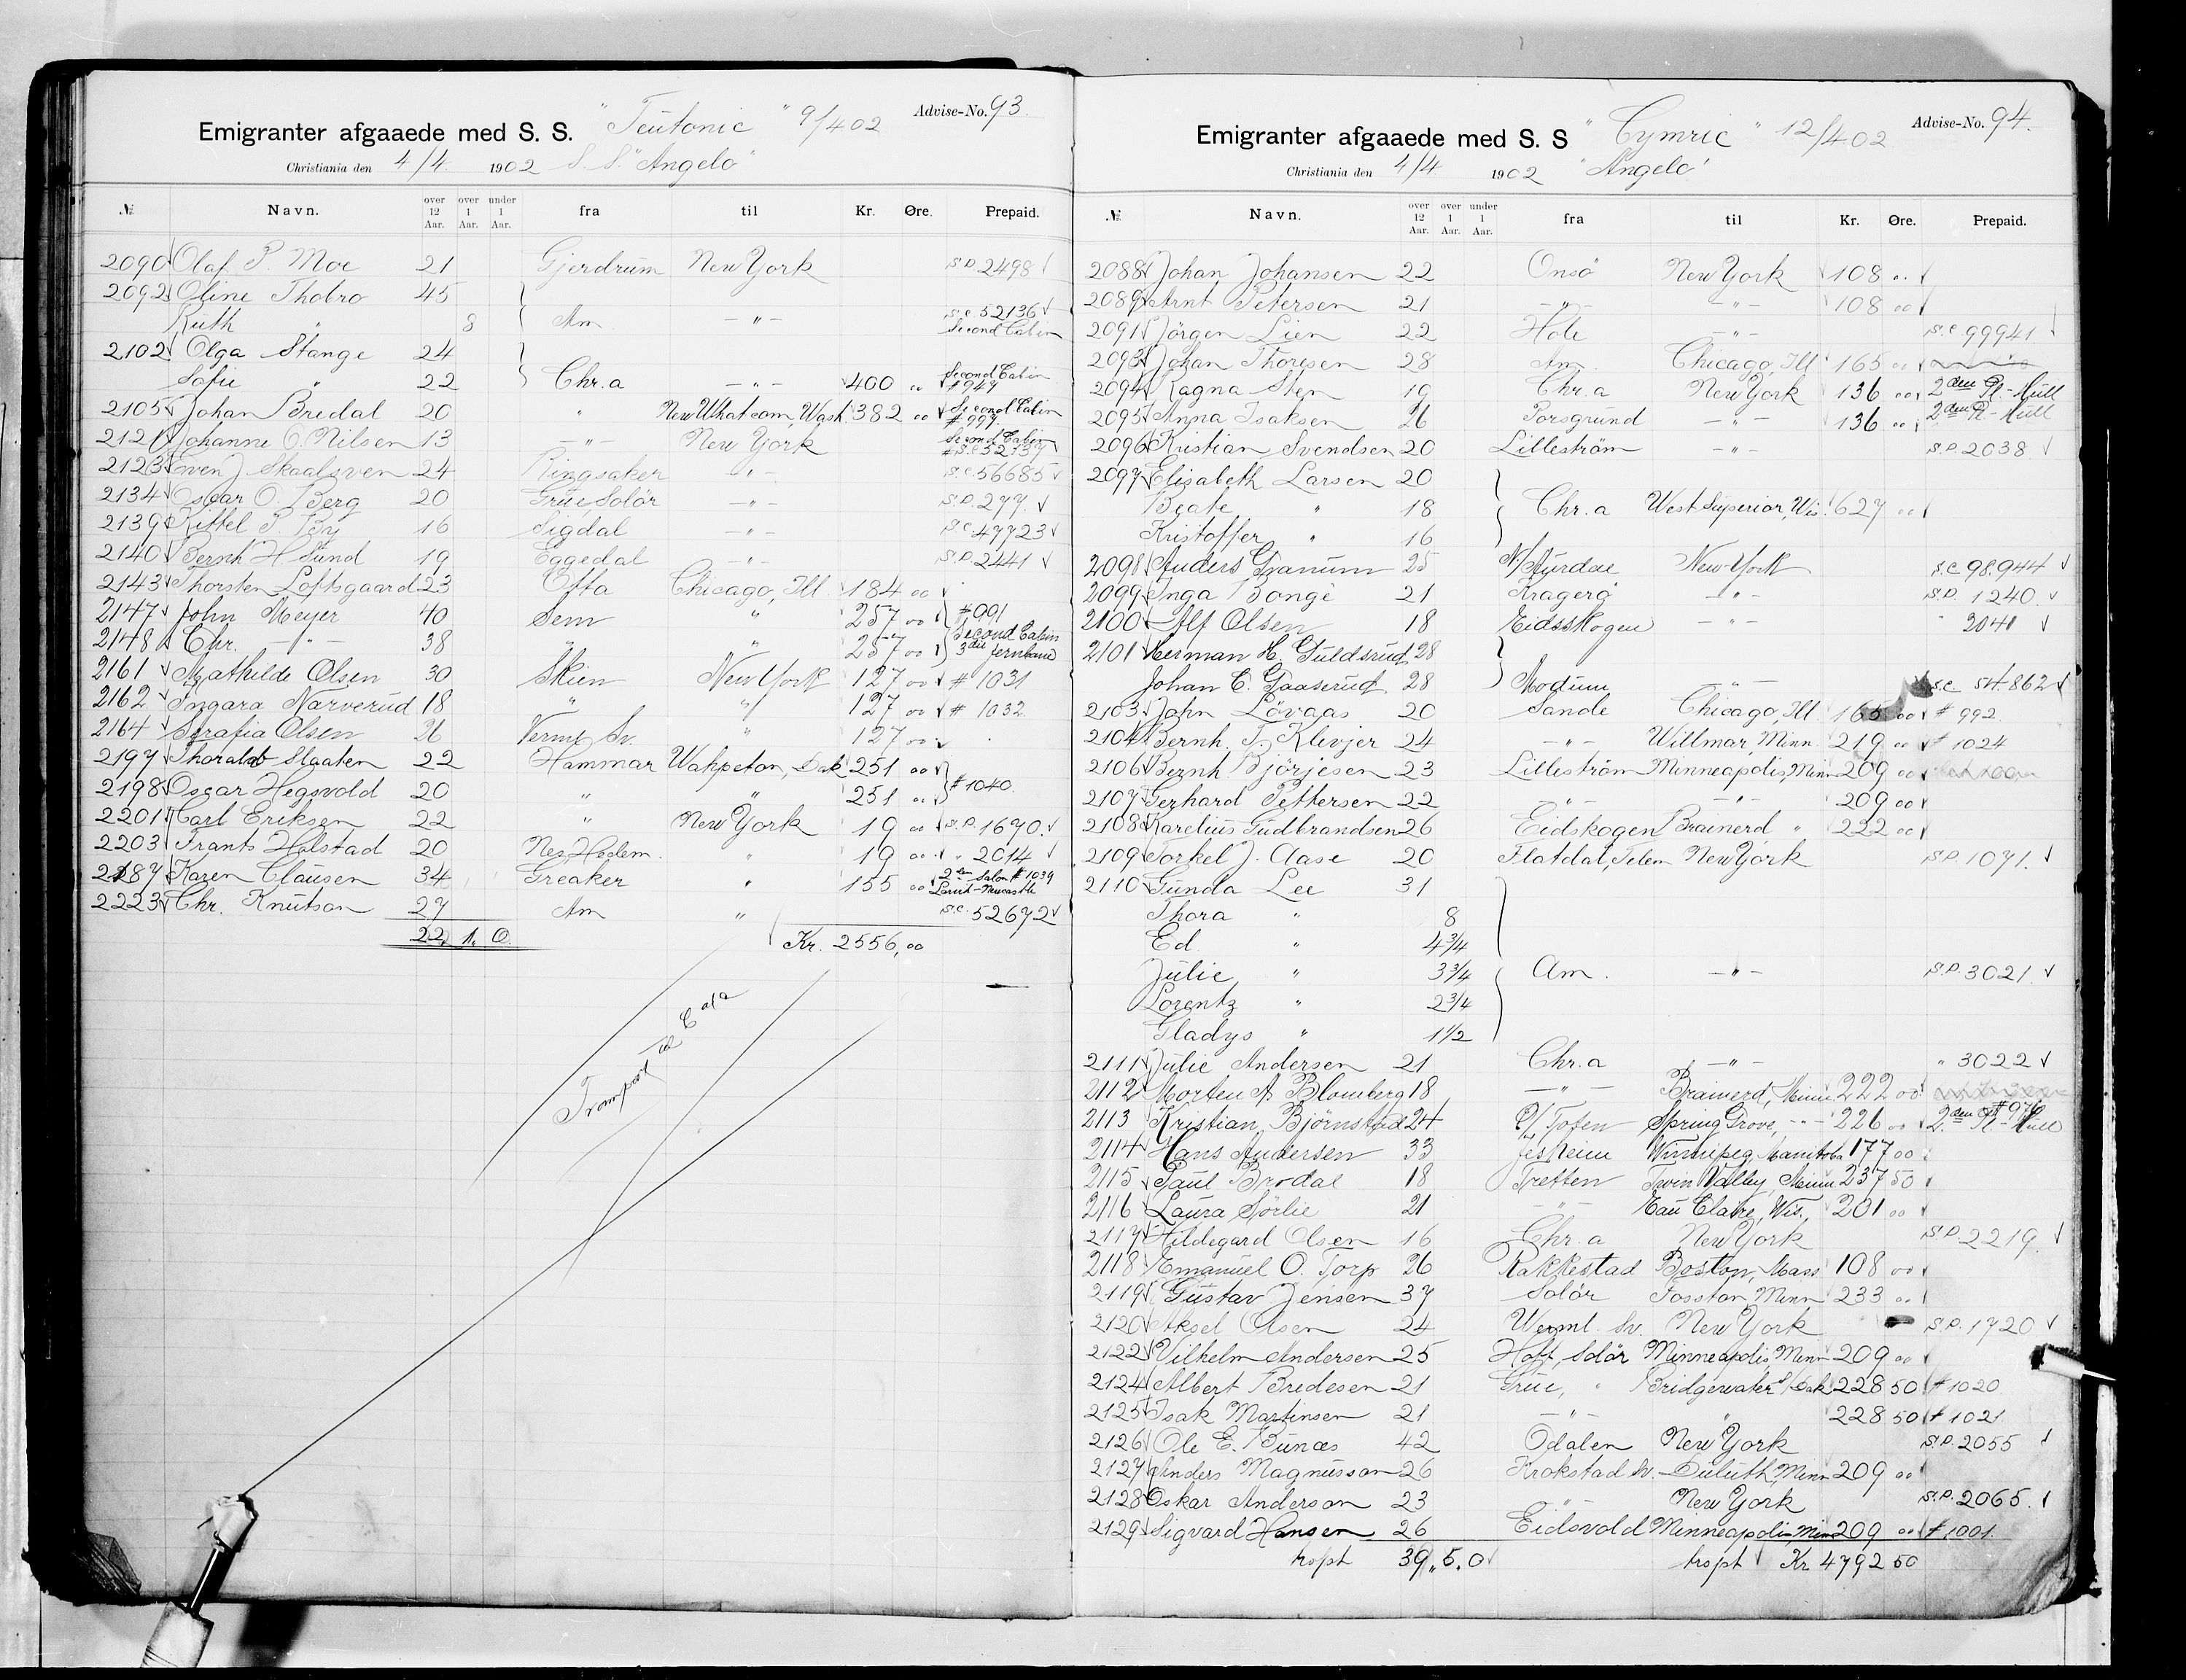 Emigranter afgaaede med S. S. "Teutonic" 9/4 02 Advise-No. 93.
Christiania den 4/4 1902 S. S. "Angelo"
№ Navn. over 12 Aar. over 1 Aar. under 1 Aar. fra til Kr. Øre. Prepaid.
2090 Olaf P. Moe 21 Gjerdrum New York S.P. 2498
2092 Oline Thobro 45
Ruth " 8 Am. — " — S.C. 52136 Second Cabin
2102 Olga Stange 24
Sofie " 22 Chr.a — " — 400 00 Second Cabin # 947
2105 Johan Bredal 20 " New Whatcom, Wash. 382 00 Second Cabin # 999
2121 Johanne O. Nilsen 13 — " — New York Second Cabin # S.C. 52737
2123 Even J. Skaalsven 24 Ringsaker — " — S.C. 56685
2134 Oscar O. Berg 20 Grue, Solör — " — S.P. 277.
2139 Kittel P. By 16 Sigdal — " — S.C. 47723
2140 Bernh. H. Sund 19 Eggedal — " — S.P. 2441
2143 Thorsten Loftsgaard 23 Otta Chicago, Ill. 184 00
2147 John Meyer 40 Sem " 257 00 # 991
2148 Chr. — " — 38 " " 257 00 Second Cabin 3die Jernbane
2161 Mathilde Olsen 30 Skien New York 127 00 # 1031
2162 Ingara Narverud 18 " " 127 00 # 1032
2164 Serafia Olsen 26 Verml. Sv. " 127 00
2197 Thorald Slaaten 22 Hammar Wahpeton, Dak. 251 00
2198 Oscar Hegsvold 20 " " 251 00 # 1040
2201 Carl Eriksen 22 " New York 19 00 S.P. 1670.
2203 Frants Halstad 20 Nes, Hedem. " 19 00 " 2014
2187 Karen Clausen 34 Greaker " 155 00 2den Salon # 1039 Laurit-Newcastle
2223 Chr. Knutson 27 Am " S.C. 52672
22 1. 0. Kr. 2556,00
Transport til
Emigranter afgaaede med S. S "Cymric" 12/4 02 Advise-No. 94.
Christiania den 4/4 1902 "Angelo"
№ Navn. over 12 Aar. over 1 Aar. under 1 Aar. fra til Kr. Øre. Prepaid.
2088 Johan Johansen 22 Onsö New York 108 00
2089 Arnt Petersen 21 — " — — " — 108 00
2091 Jörgen Lien 22 Hole — " — S.C 99941
2093 Johan Thoresen 28 Am. Chicago, Ill 165 00
2094 Ragna Sten 19 Chr.a New York 136 00 2den Pl-Hull
2095 Anna Isaksen 26 Porsgrund — " — 136 00 2den Pl-Hull
2096 Kristian Svendsen 20 Lilleström — " — S.P. 2038
2097 Elisabeth Larsen 20
Beate " 18 Chr.a West Superior, Wis. 627 00
Kristoffer " 16
2098 Anders Granum 25 N/Aurdal New York S.C 98.944
2099 Inga Bonge 21 Kragerö — " — S.P. 1240
2100 Alf Olsen 18 Eidsskogen — " — " 2041
2101 Herman H. Guldsrud 28
Johan C. Gaaserud 28 Modum — " — S.C. 54.862
2103 John Lövaas 20 Sande Chicago, Ill 165 00 # 992
2104 Bernh. T. Klevjer 24 — " — Willmar, Minn 219 00 # 1024
2106 Bernh. Björjesen 23 Lilleström Minneapolis, Minn 209 00
2107 Gerhard Pettersen 22 — " — — " — 209 00
2108 Karelius Gudbrandsen 26 Eidskogen Brainerd " 222 00
2109 Torkel J. Aase 20 Flatdal, Telem New York S.P. 1071.
2110 Gunda Lee 31
Thora " 8
Ed " 4 3/4
Julie " 3 3/4 Am. — " — S.P. 3021
Lorentz " 2 3/4
Gladys " 1 1/2
2111 Julie Andersen 21 Chr.a — " — " 3022
2112 Morten A. Blomberg 18 — " — Brainerd, Minn 222 00
2113 Kristian Björnstad 24 Ö/Toten Spring Grove, -"- 226 00 2den Pl-Hull # 976
2114 Hans Andersen 33 Jesheim Winnipeg, Manitoba 177 00
2115 Paul Brodal 18 Tretten Twin Valley, Minn 237 50
2116 Laura Sörlie 21 — " — Eau Claire, Wis. 201 00
2117 Hildegard Olsen 16 Chr.a New York S.P. 2219
2118 Emanuel O. Torp 26 Rakkestad Boston, Mass 108 00
2119 Gustav Jensen 37 Solör Fosston, Minn 233 00
2120 Aksel Olsen 24 Werml. Sv. New York S.P. 1720
2122 Vilhelm Andersen 25 Hoff, Solör Minneapolis, Minn 209 00
2124 Albert Bredesen 21 Grue, " Bridgewater S/Dak 228 50 # 1020
2125 Isak Martinsen 21 — " — " 228 50 # 1021
2126 Ole E. Bunæs 42 Odalen New York S.P. 2055
2127 Anders Magnusson 26 Krokstad Sv. Duluth, Minn 209 00
2128 Oskar Anderson 23 — " — New York S.P. 2065.
2129 Sigvard Hansen 26 Eidsvold Minneapolis, Minn 209 00 # 1001.
trspt 39 " 5. 0 trspt Kr. 4792 50